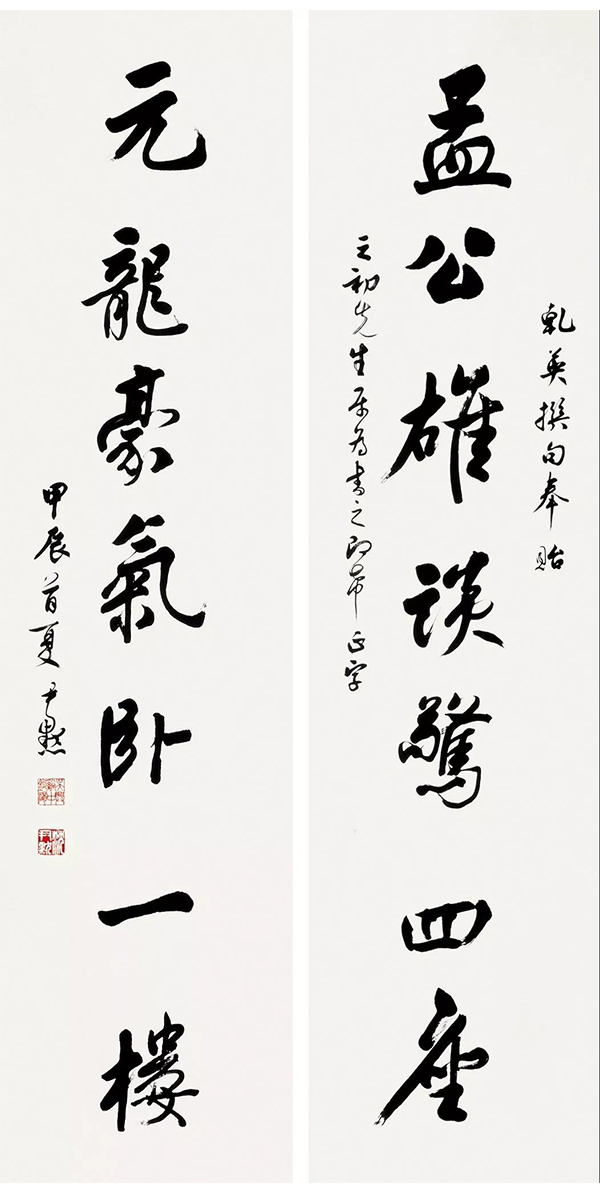 乾英撰句奉貽
孟公雄談驚四座
之初先生屬為書之即希正字
元龍豪氣卧一樓
甲辰首夏尹默